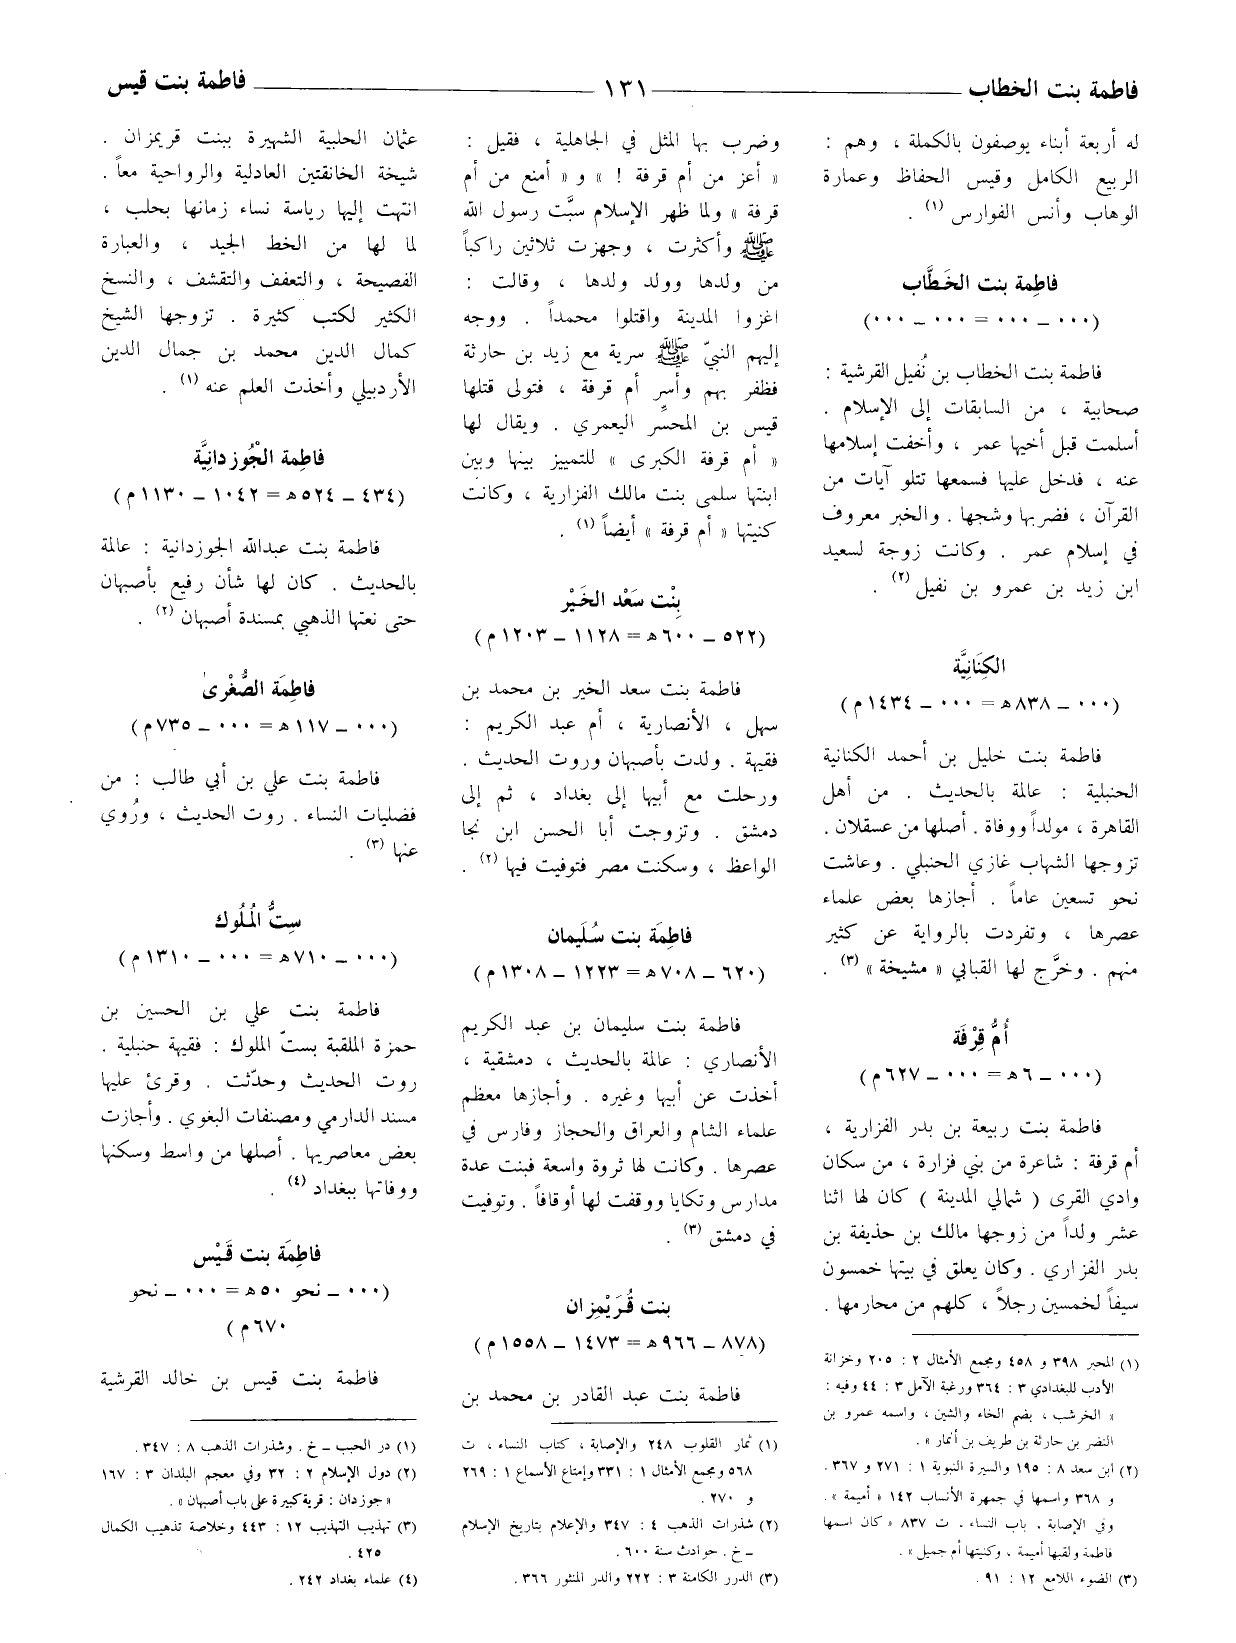 فاطمة بنت الخطاب ــــــ ١٣١ ــــــ فاطمة بنت قيس
له أربعة أبناء يوصفون بالكملة ، وهم :
الربيع الكامل وقيس الحفاظ وعمارة
الوهاب وأنس الفوارس (١) .
فاطِمة بنت الخَطَّاب
(٠٠٠ ــ ٠٠٠ = ٠٠٠ ــ ٠٠٠)
فاطمة بنت الخطاب بن نُفيل القرشية :
صحابية ، من السابقات إلى الإسلام .
أسلمت قبل أخيها عمر ، وأخفت إسلامها
عنه ، فدخل عليها فسمعها تتلو آيات من
القرآن ، فضربها وشجها . والخبر معروف
في إسلام عمر . وكانت زوجة لسعيد
ابن زيد بن عمرو بن نفيل (٢) .
الكِنَانِيَّة
(٠٠٠ ــ ٨٣٨ه = ٠٠٠ ــ ١٤٣٤ م)
فاطمة بنت خليل بن أحمد الكنانية
الحنبلية : عالمة بالحديث . من أهل
القاهرة ، مولداً ووفاة . أصلها من عسقلان .
تزوجها الشهاب غازي الحنبلي . وعاشت
نحو تسعين عاماً . أجازها بعض علماء
عصرها ، وتفردت بالرواية عن كثير
منهم . وخرَّج لها القبابي « مشيخة » (٣) .
أُمُّ قِرْفَة
(٠٠٠ ــ ٦ه = ٠٠٠ ــ ٦٢٧م)
فاطمة بنت ربيعة بن بدر الفزارية ،
أم قرفة : شاعرة من بني فزارة ، من سكان
وادي القرى ( شمالي المدينة ) كان لها اثنا
عشر ولداً من زوجها مالك بن حذيفة بن
بدر الفزاري . وكان يعلق في بيتها خمسون
سيفاً لخمسين رجلاً ، كلهم من محارمها .
(١) المحبر ٣٩٨ و ٤٥٨ ومجمع الأمثال ٢ : ٢٠٥ وخزانة
الأدب للبغدادي ٣ : ٣٦٤ ورغبة الآمل ٣ : ٤٤ وفيه :
« الخرشب ، بضم الخاء والشين ، واسمه عمرو بن
النضر بن حارثة بن طريف بن أنمار » .
(٢) ابن سعد ٨ : ١٩٥ والسيرة النبوية ١ : ٢٧١ و ٣٦٧ .
و ٣٦٨ واسمها في جمهرة الأنساب ١٤٢ « أميمة » .
وفي الإصابة ، باب النساء . ت ٨٣٧ « كان اسمها
فاطمة ولقبها أميمة ، وكنيتها أم جميل » .
(٣) الضوء اللامع ١٢ : ٩١ .
وضرب بها المثل في الجاهلية ، فقيل :
« أعز من أم قرفة ! » و « أمنع من أم
قرفة » ولما ظهر الإسلام سبَّت رسول الله
ﷺ وأكثرت ، وجهزت ثلاثين راكباً
من ولدها وولد ولدها ، وقالت :
اغزوا المدينة واقتلوا محمداً . ووجه
إليهم النبيّ ﷺ سرية مع زيد بن حارثة
فظفر بهم وأسر أم قرفة ، فتولى قتلها
قيس بن المحسِّر اليعمري . ويقال لها
« أم قرفة الكبرى » للتمييز بينها وبين
ابنتها سلمى بنت مالك الفزارية ، وكانت
كنيتها « أم قرفة » أيضاً (١) .
بِنْت سَعْد الخَيْر
(٥٢٢ ــ ٦٠٠ه = ١١٢٨ ــ ١٢٠٣ م)
فاطمة بنت سعد الخير بن محمد بن
سهل ، الأنصارية ، أم عبد الكريم :
فقيهة . ولدت بأصبهان وروت الحديث .
ورحلت مع أبيها إلى بغداد ، ثم إلى
دمشق . وتزوجت أبا الحسن ابن نجا
الواعظ ، وسكنت مصر فتوفيت فيها (٢) .
فاطِمَة بنت سُلَيمان
(٦٢٠ ــ ٧٠٨ه = ١٢٢٣ ــ ١٣٠٨ م)
فاطمة بنت سليمان بن عبد الكريم
الأنصاري : عالمة بالحديث ، دمشقية ،
أخذت عن أبيها وغيره . وأجازها معظم
علماء الشام والعراق والحجاز وفارس في
عصرها . وكانت لها ثروة واسعة فبنت عدة
مدارس وتكايا ووقفت لها أوقافاً . وتوفيت
في دمشق (٣) .
بنت قُرَيْمِزان
(٨٧٨ ــ ٩٦٦ه = ١٤٧٣ ــ ١٥٥٨ م)
فاطمة بنت عبد القادر بن محمد بن
(١) ثمار القلوب ٢٤٨ والإصابة ، كتاب النساء ، ت
٥٦٨ ومجمع الأمثال ١ : ٣٣١ وإمتاع الأسماع ١ : ٢٦٩
و ٢٧٠ .
(٢) شذرات الذهب ٤ : ٣٤٧ والإعلام بتاريخ الإسلام
ــ خ . حوادث سنة ٦٠٠ .
(٣) الدرر الكامنة ٣ : ٢٢٢ والدر المنثور ٣٦٦ .
عثمان الحلبية الشهيرة ببنت قريمزان .
شيخة الخانقتين العادلية والرواحية معاً .
انتهت إليها رياسة نساء زمانها بحلب ،
لما لها من الخط الجيد ، والعبارة
الفصيحة ، والتعفف والتقشف ، والنسخ
الكثير لكتب كثيرة . تزوجها الشيخ
كمال الدين محمد بن جمال الدين
الأردبيلي وأخذت العلم عنه (١) .
فاطِمة الجُوْزدانِيَّة
(٤٣٤ ــ ٥٢٤ه = ١٠٤٢ ــ ١١٣٠م)
فاطمة بنت عبدالله الجوزدانية : عالمة
بالحديث . كان لها شأن رفيع بأصبهان
حتى نعتها الذهبي بمسندة أصبهان (٢) .
فاطِمَة الصُّغْرىٰ
(٠٠٠ ــ ١١٧ه = ٠٠٠ ــ ٧٣٥م)
فاطمة بنت علي بن أبي طالب : من
فضليات النساء . روت الحديث ، ورُوي
عنها (٣) .
سِتُّ المُلُوك
(٠٠٠ ــ ٧١٠ه = ٠٠٠ ــ ١٣١٠ م)
فاطمة بنت علي بن الحسين بن
حمزة الملقبة بستّ الملوك : فقيهة حنبلية .
روت الحديث وحدّثت . وقرئ عليها
مسند الدارمي ومصنفات البغوي . وأجازت
بعض معاصريها . أصلها من واسط وسكنها
ووفاتها ببغداد (٤) .
فاطِمَة بنت قَيْس
(٠٠٠ ــ نحو ٥٠ه = ٠٠٠ ــ نحو
٦٧٠م )
فاطمة بنت قيس بن خالد القرشية
(١) در الحبب ــ خ . وشذرات الذهب ٨ : ٣٤٧ .
(٢) دول الإسلام ٢ : ٣٢ وفي معجم البلدان ٣ : ١٦٧
« جوزدان : قرية كبيرة على باب أصبهان » .
(٣) تهذيب التهذيب ١٢ : ٤٤٣ وخلاصة تذهيب الكمال
٤٢٥ .
(٤) علماء بغداد ٢٤٢ .